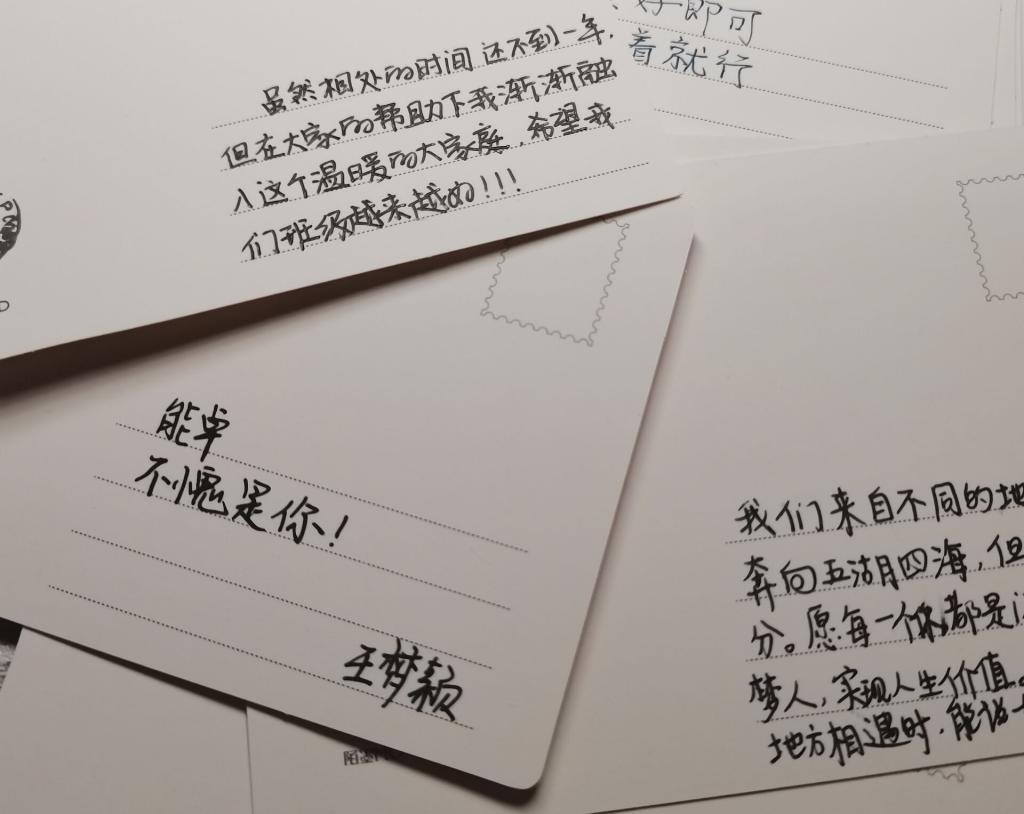 好即可
着就行
虽然相处的时间还不到一年,
但在大家的帮助下我渐渐融
入这个温暖的大家庭,希望我
们班级越来越好!!!
能卓
不愧是你!
王梦颖
我们来自不同的地
奔向五湖四海,但
分。愿每一个都是
梦人,实现人生价值。
地方相遇时,能说一